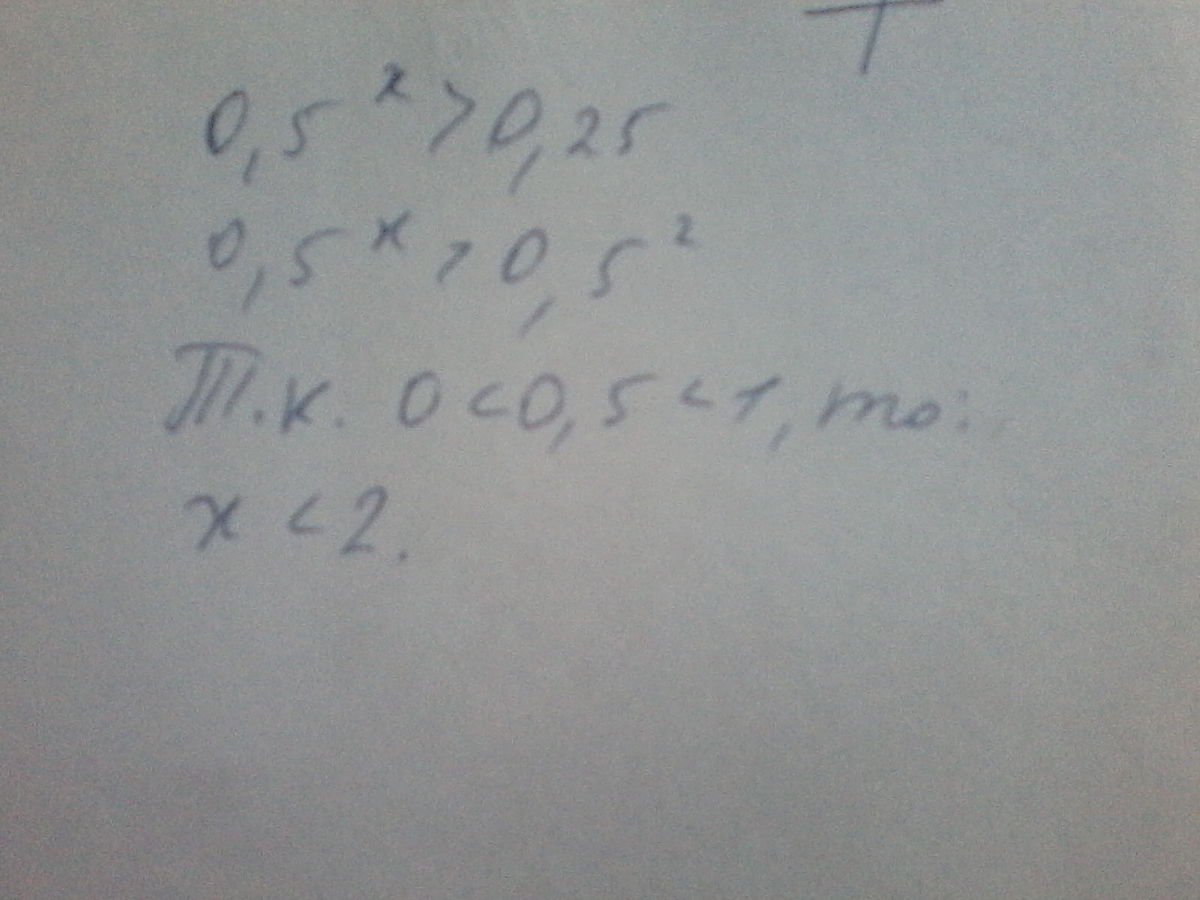 0,5^x > 0,25
0,5^x > 0,5^2
Т.к. 0 < 0,5 < 1, то:
x < 2.